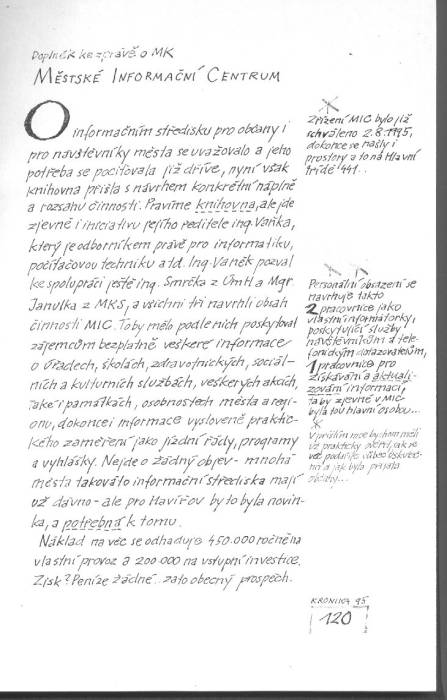 Doplněk ke zprávě o MK
MĚSTSKÉ INFORMAČNÍ CENTRUM
O informačním středisku pro občany i
pro návštěvníky města se uvažovalo a jeho
potřeba se pociťovala již dříve, nyní však
knihovna přišla s návrhem konkrétní náplně
a rozsahu činnosti. Pravíme knihovna, ale jde
zjevně i iniciativu jejího ředitele ing. Vaňka,
který je odborníkem právě pro informatiku,
počítačovou techniku atd. Ing. Vaněk pozval
ke spolupráci ještě ing. Smrčka z ÚmH a Mgr.
Janulka z MKS, a všichni tři navrhli obsah
činnosti MIC. To by mělo podle nich poskytovat
zájemcům bezplatně veškeré informace
o úřadech, školách, zdravotnických, sociál-
ních a kulturních službách, veškerých akcích,
také i památkách, osobnostech města a regi-
onu, dokonce i informace vysloveně praktic-
kého zaměření jako jízdní řády, programy
a vyhlášky. Nejde o žádný objev - mnohá
města takováto informační střediska mají
už dávno - ale pro Havířov by to byla novin-
ka, a potřebná k tomu.
Náklad na věc se odhaduje 450.000 ročně na
vlastní provoz a 200.000 na vstupní investice.
Zisk? Peníze žádné.. zato obecný prospěch.
Zřízení MIC bylo již
schváleno 2.8.1995,
dokonce se našly i
prostory a to na Hlavní
třídě 441...
Personální obsazení se
navrhuje takto
2 pracovnice jako
vlastní informátorky,
poskytující služby
návštěvníkům a tele-
fonickým dotazovatelům,
1 pracovnice pro
získávání a aktuali-
zování informací,
ta by zjevně v MIC
byla tou hlavní osobou...
V příštím roce bychom měli
už prakticky ověřit, jak se
věc podařilo vůbec uskuteč-
nit a jak byla přijata
občany...
KRONIKA 95
120